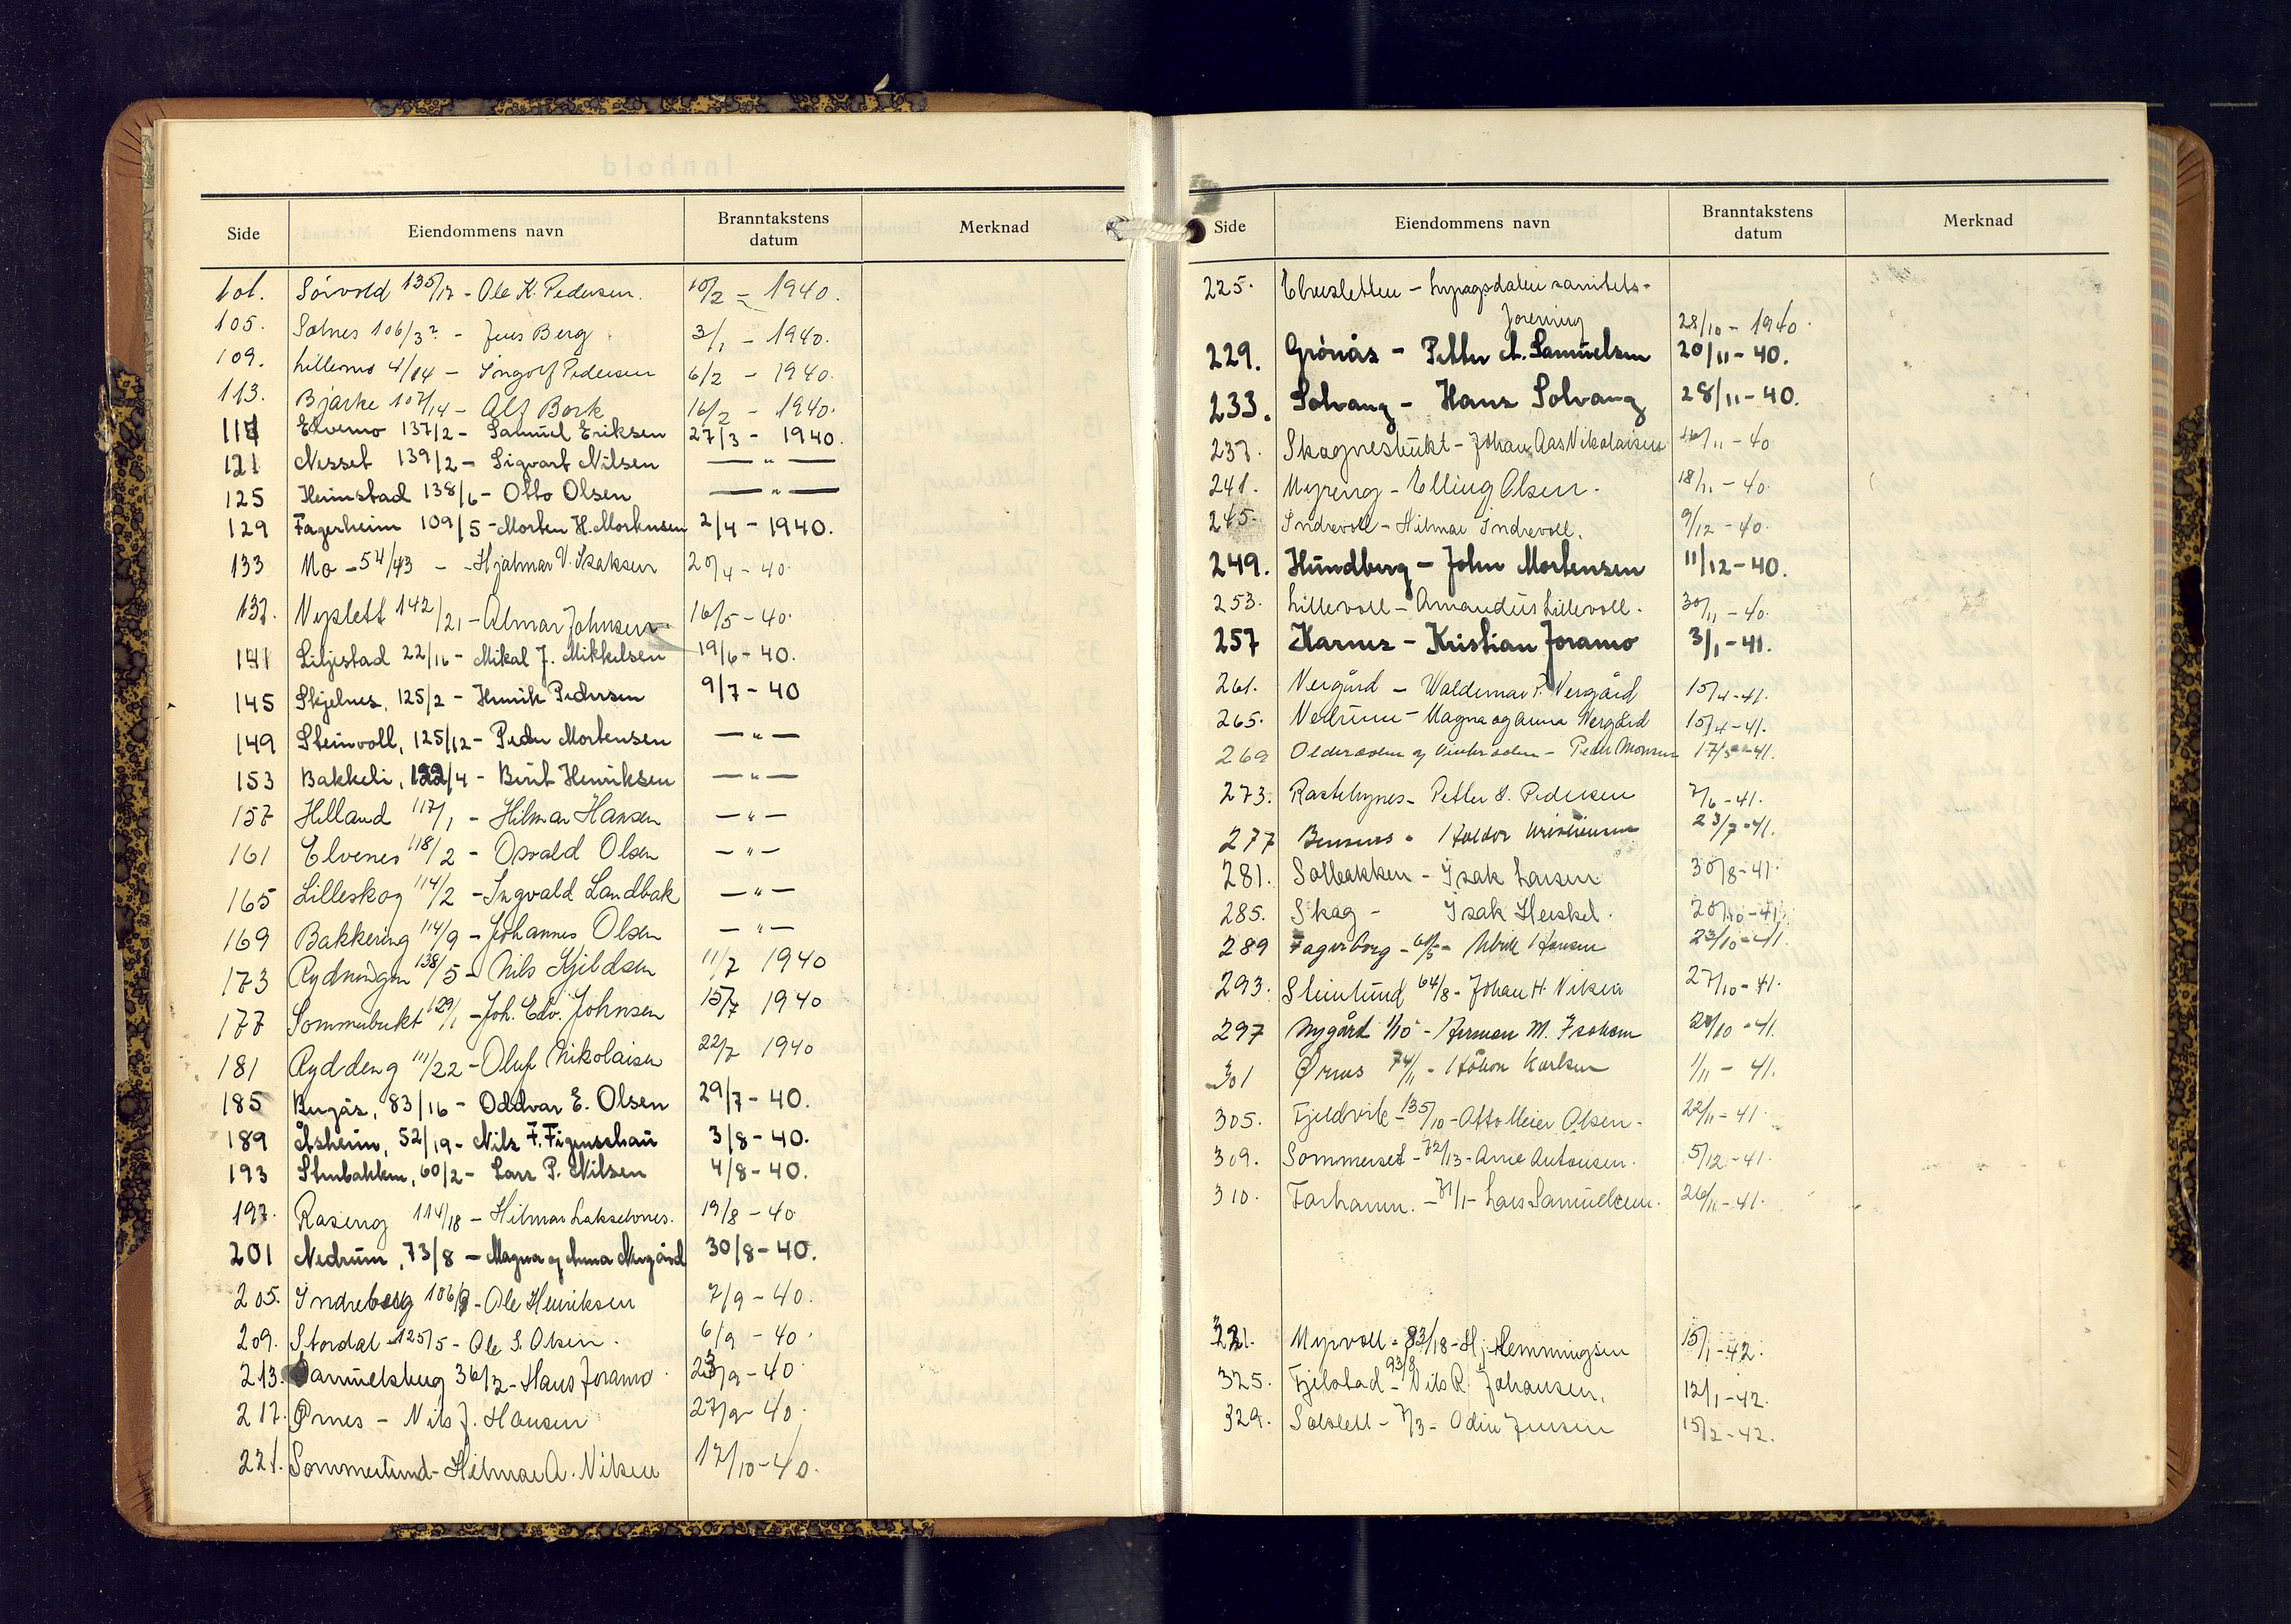 Side Eiendommens navn Branntakstens datum Merknad
101. Sörvold 135/12 - Ole K. Pedersen. 10/2 - 1940.
105. Solnes 106/32 - Jens Berg 3/1 - 1940.
109. Lillemo 4/14 - Ingolf Pedersen 6/2 - 1940.
113. Bjarke 107/14 - Alf Bork 16/2 - 1940.
117 Elvemo 137/2 - Samuel Eriksen 27/3 - 1940.
121 Nesset 139/2 - Sigvart Nilsen — " —
125 Heimstad 138/6 - Otto Olsen — " —
129 Fagerheim 109/5 - Morten H. Mortensen 2/4 - 1940.
133 Mo - 54/43 - Hjalmar V. Isaksen 20/4 - 40.
137. Nyslett 142/21 - Almar Johnsen 16/5 - 40.
141 Liljestad 22/16 - Mikal J. Mikkelsen 19/6 - 40.
145 Skjelnes, 125/2 - Henrik Pedersen 9/7 - 40
149 Steinvoll, 125/12 - Peder Mortensen — " —
153 Bakkeli, 122/4 - Berit Henriksen — " —
157 Helland 117/1 - Hilmar Hansen — " —
161 Elvenes 118/2 - Osvald Olsen — " —
165 Lilleskog 114/2 - Ingvald Landbak — " —
169 Bakkeeng 114/9 - Johannes Olsen — " —
173 Rydningen 138/5 - Nils Kjeldsen 11/7 1940
177 Sommerbukt 129/1 - Joh. Edv. Johnsen 15/7 1940
181 Ryddeng 111/22 - Oluf Nikolaisen 22/7 1940
185 Bergås, 83/16 - Oddvar E. Olsen 29/7 - 40.
189 Åsheim, 52/19 - Nils F. Figenschau 3/8 - 40.
193 Stenbakken, 60/2 - Lars P. Nilsen 4/8 - 40.
197. Raseng 114/18 - Hilmar Lakselvnes. 19/8 - 40
201 Nedrum, 73/8 - Magna og Anna Nergård 30/8 - 40.
205. Indreberg 106/9 - Ole Henriksen 7/9 - 40.
209. Stordal - 125/5 - Ole S. Olsen. 6/9 - 40.
213. Samuelsberg 36/2 - Hans Joramo. 23/9 - 40.
217. Ørnes - Nils J. Hansen 27/9 - 40.
221. Sommerlund - Hilmar A. Nilsen 12/10 - 40.
Side Eiendommens navn Branntakstens datum Merknad
225. Elvesletten - Lyngsdalen sanitets-
forening 28/10 - 1940.
229. Grönås - Petter A. Samuelsen 20/11 - 40.
233. Solvang - Hans Solvang 28/11 - 40.
237. Skognesbukt - Johan Aas Nikolaisen 16/11 - 40
241. Myreng - Elling Olsen. 18/11 - 40.
245. Indrevoll - Hilmar Indrevoll. 9/12 - 40.
249. Hundberg - John Mortensen 11/12 - 40.
253. Lillevoll - Amandus Lillevoll. 30/11 - 40.
257 Karnes - Kristian Joramo 3/1 - 41.
261. Nergård - Waldemar P. Nergård 15/4 - 41.
265. Nedrum - Magna og Anna Nergård 15/4 - 41.
269 Peder Monsen 17/5 - 41.
273. Rastebynes - Petter S. Pedersen 7/6 - 41.
277 Haldor 23/7 - 41.
281. Solbakken - Isak Larsen 30/8 - 41.
285. Skog - Isak Heiskel. 20/10 - 41.
289 Fagerborg - Ulrik Hansen 23/10 - 41.
293. Steinlund 64/8 - Johan H. Nilsen 27/10 - 41.
297 Nygård 1/10 - Herman M. Isaksen 28/10 - 41.
301 Ørnes 74/11 - Håkon Karlsen 1/11 - 41.
305. Fjeldvik - 135/10 - Otto Meier Olsen - 22/11 - 41.
309. Sommerset - 72/13 - Arne Antonsen. 5/12 - 41.
310. Forhamn. - 71/1 - Lars Samuelsen. 26/11 - 41.
321. Myrvoll - 83/18 - Hj. Hemmingsen 15/1 - 42.
325. Fjelstad - 93/8 Nils R. Johansen. 12/1 - 42.
329. Solslett - 7/3 - Odin Jensen 15/2 - 42.